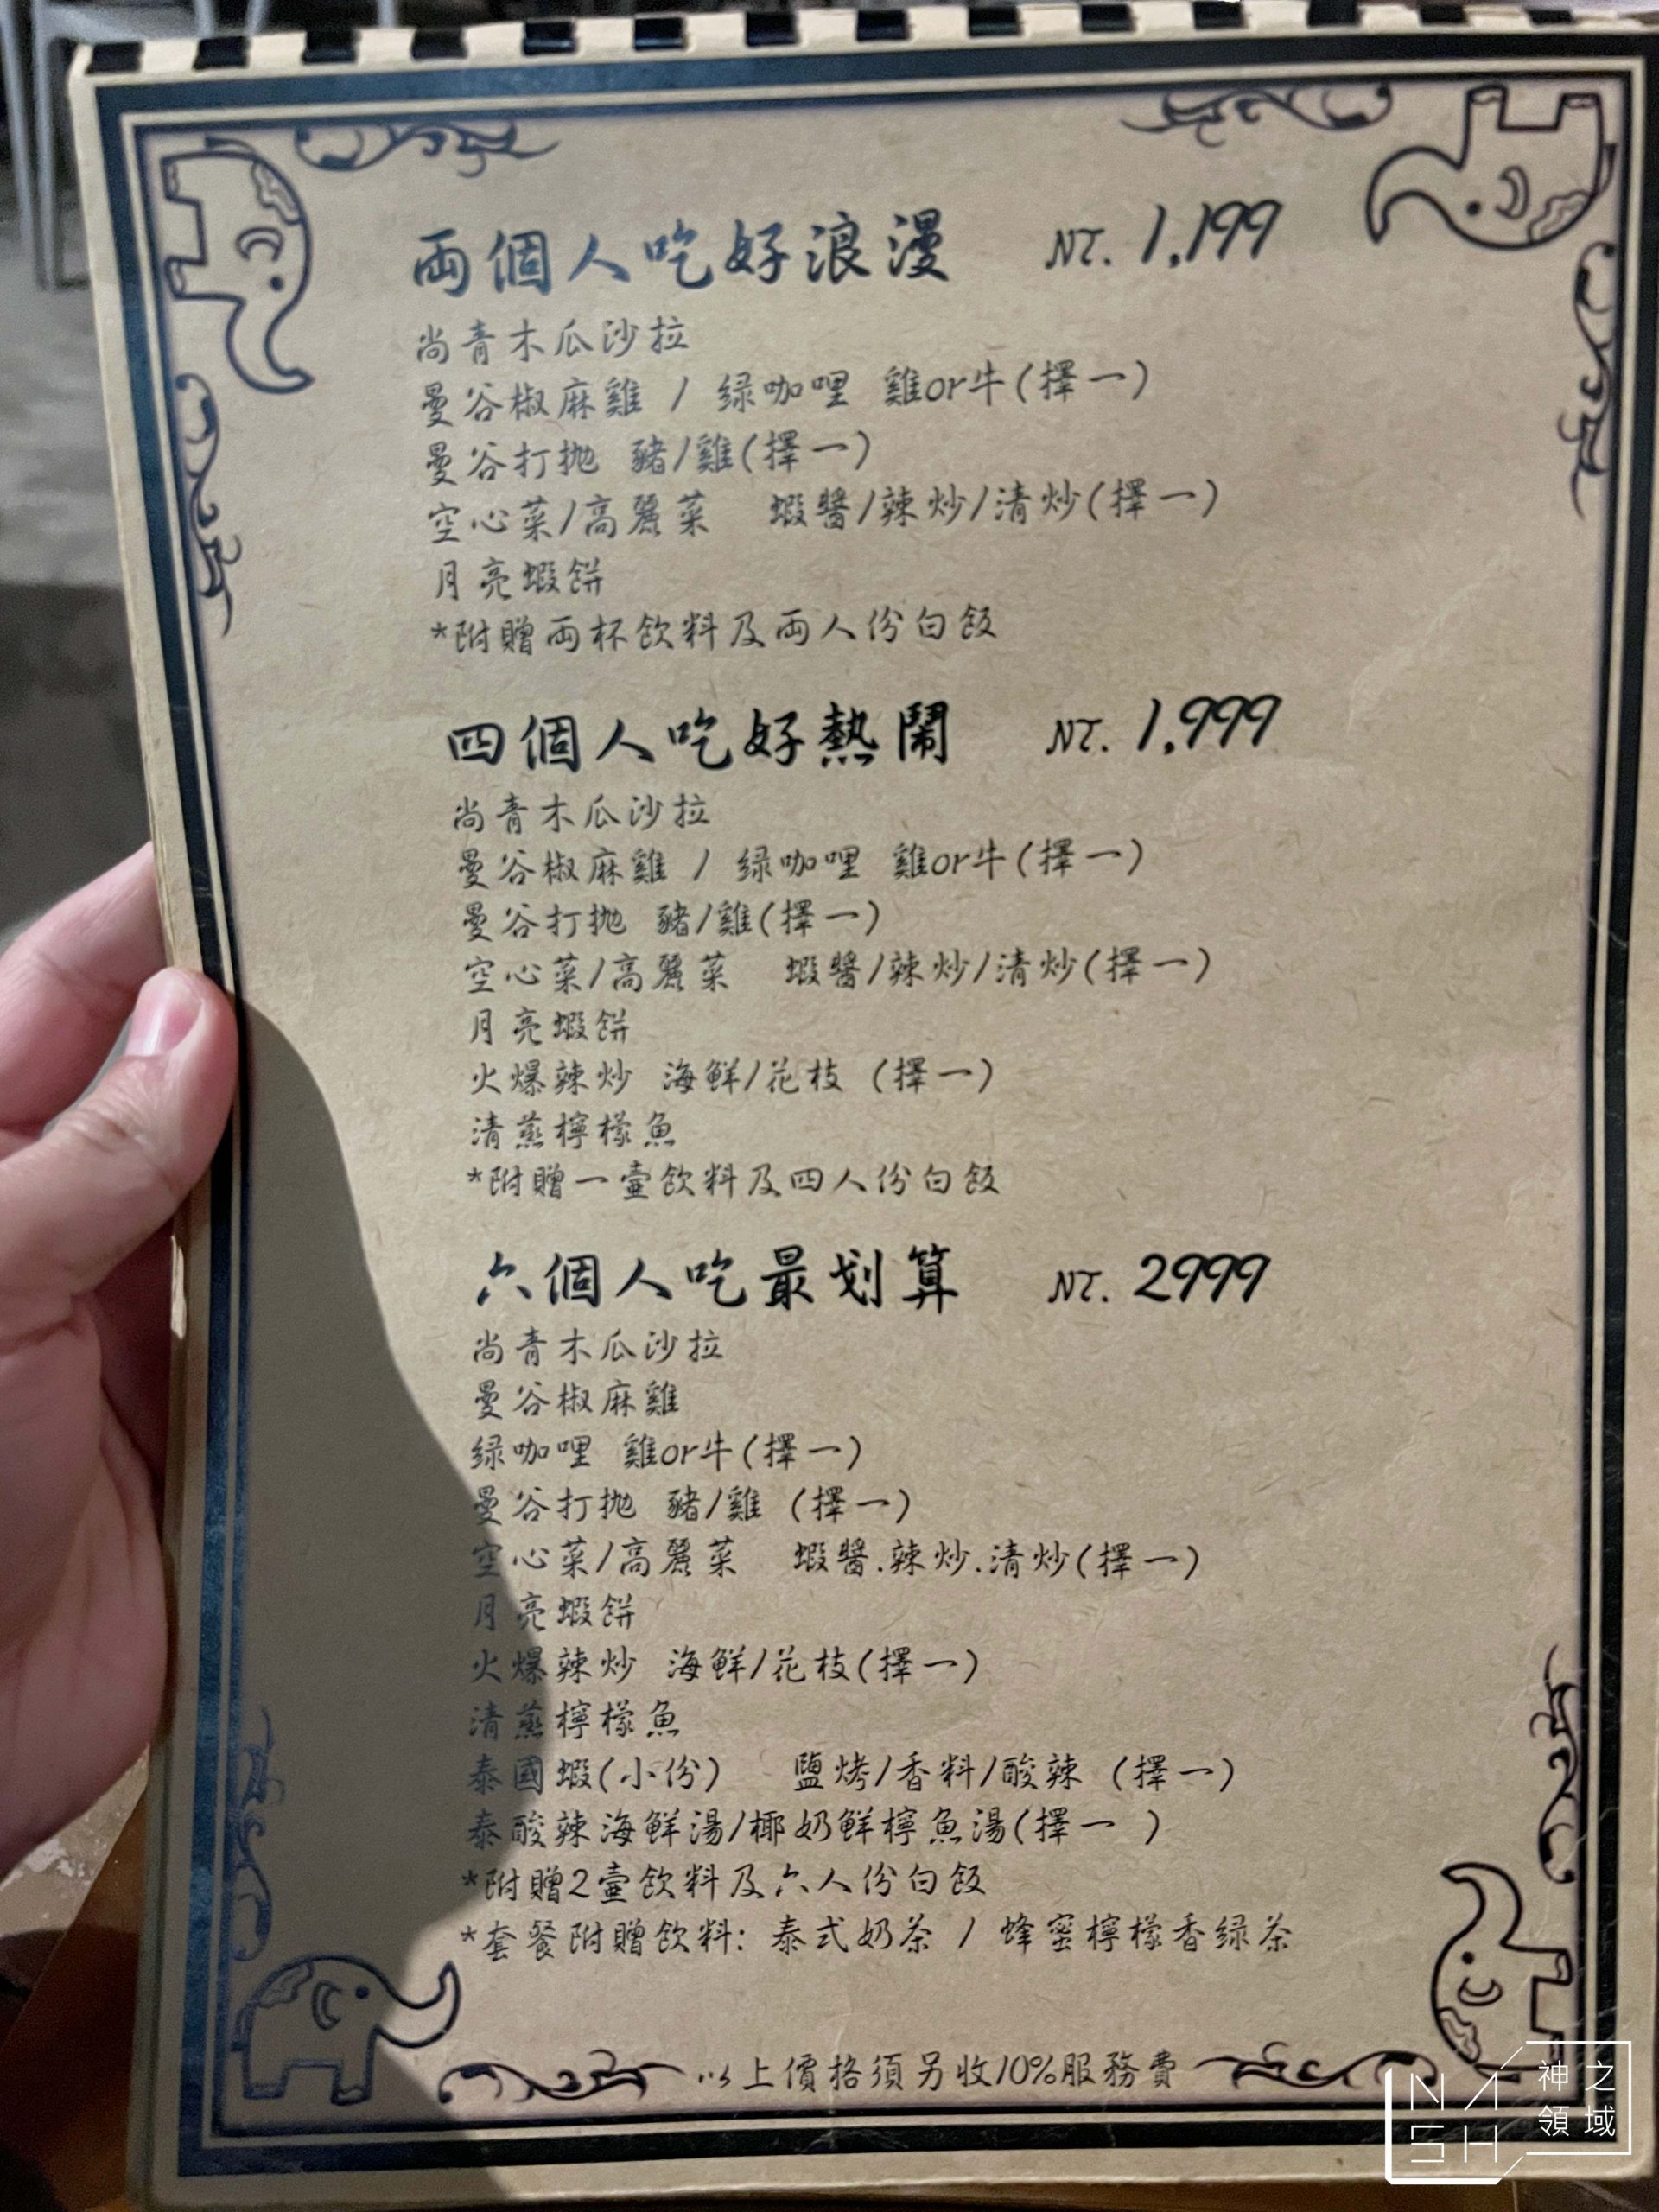 兩個人吃好浪漫 NT. 1,199
尚青木瓜沙拉
曼谷椒麻雞 / 绿咖哩 雞or牛(擇一)
曼谷打拋 豬/雞(擇一)
空心菜/高麗菜 蝦醬/辣炒/清炒(擇一)
月亮蝦餅
*附贈兩杯飲料及兩人份白飯
四個人吃好熱鬧 NT. 1,999
尚青木瓜沙拉
曼谷椒麻雞 / 绿咖哩 雞or牛(擇一)
曼谷打拋 豬/雞(擇一)
空心菜/高麗菜 蝦醬/辣炒/清炒(擇一)
月亮蝦餅
火爆辣炒 海鮮/花枝 (擇一)
清蒸檸檬魚
*附贈一壺飲料及四人份白飯
六個人吃最划算 NT. 2999
尚青木瓜沙拉
曼谷椒麻雞
绿咖哩 雞or牛(擇一)
曼谷打拋 豬/雞 (擇一)
空心菜/高麗菜 蝦醬.辣炒.清炒(擇一)
月亮蝦餅
火爆辣炒 海鮮/花枝(擇一)
清蒸檸檬魚
泰國蝦(小份) 鹽烤/香料/酸辣 (擇一)
泰酸辣海鮮湯/椰奶鮮檸魚湯(擇一 )
*附贈2壺飲料及六人份白飯
*套餐附贈飲料: 泰式奶茶 / 蜂蜜檸檬香绿茶
以上價格須另收10%服務費
NASH 神之領域